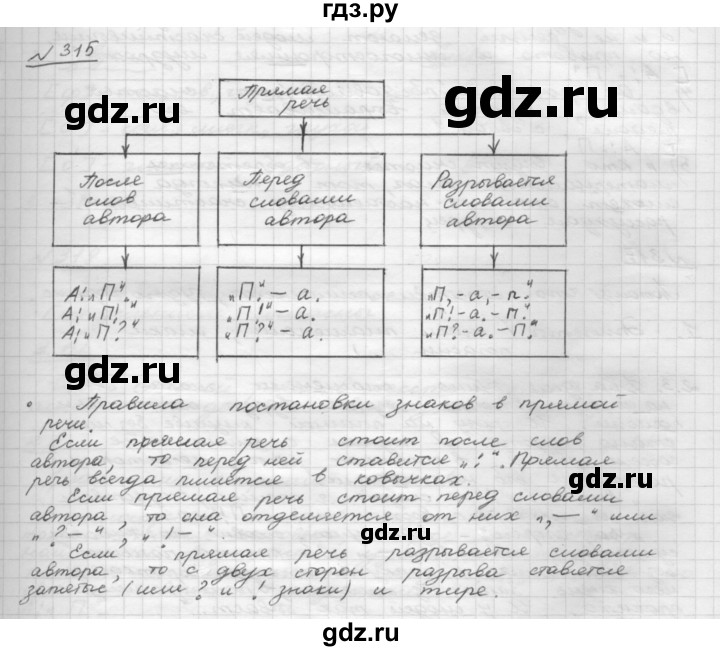 гдз.ру
№ 315
gdz.ru
gdz.ru
Прямая
речь
После
слов
автора
Перед
словами
автора
Разрывается
словами
автора
gdz.ru
А: „П".
А: „П!"
А: „П?"
„П" – а.
„П!" – а.
„П?" – а.
„П, - а, - п."
„П! - а. - П."
„П? - а. - П."
gdz.ru
• Правила постановки знаков в прямой
речи.
Если прямая речь стоит после слов
автора, то перед ней ставится „:". Прямая
речь всегда пишется в ковычках.
gdz.ru
Если прямая речь стоит перед словами
автора, то она отделяется от них „, — " или
„? — ", „! — ".
gdz.ru
Если, прямая речь разрывается словами
автора, то с двух сторон разрыва ставятся
запятые (или ? и ! знаки) и тире.
gdz.ru